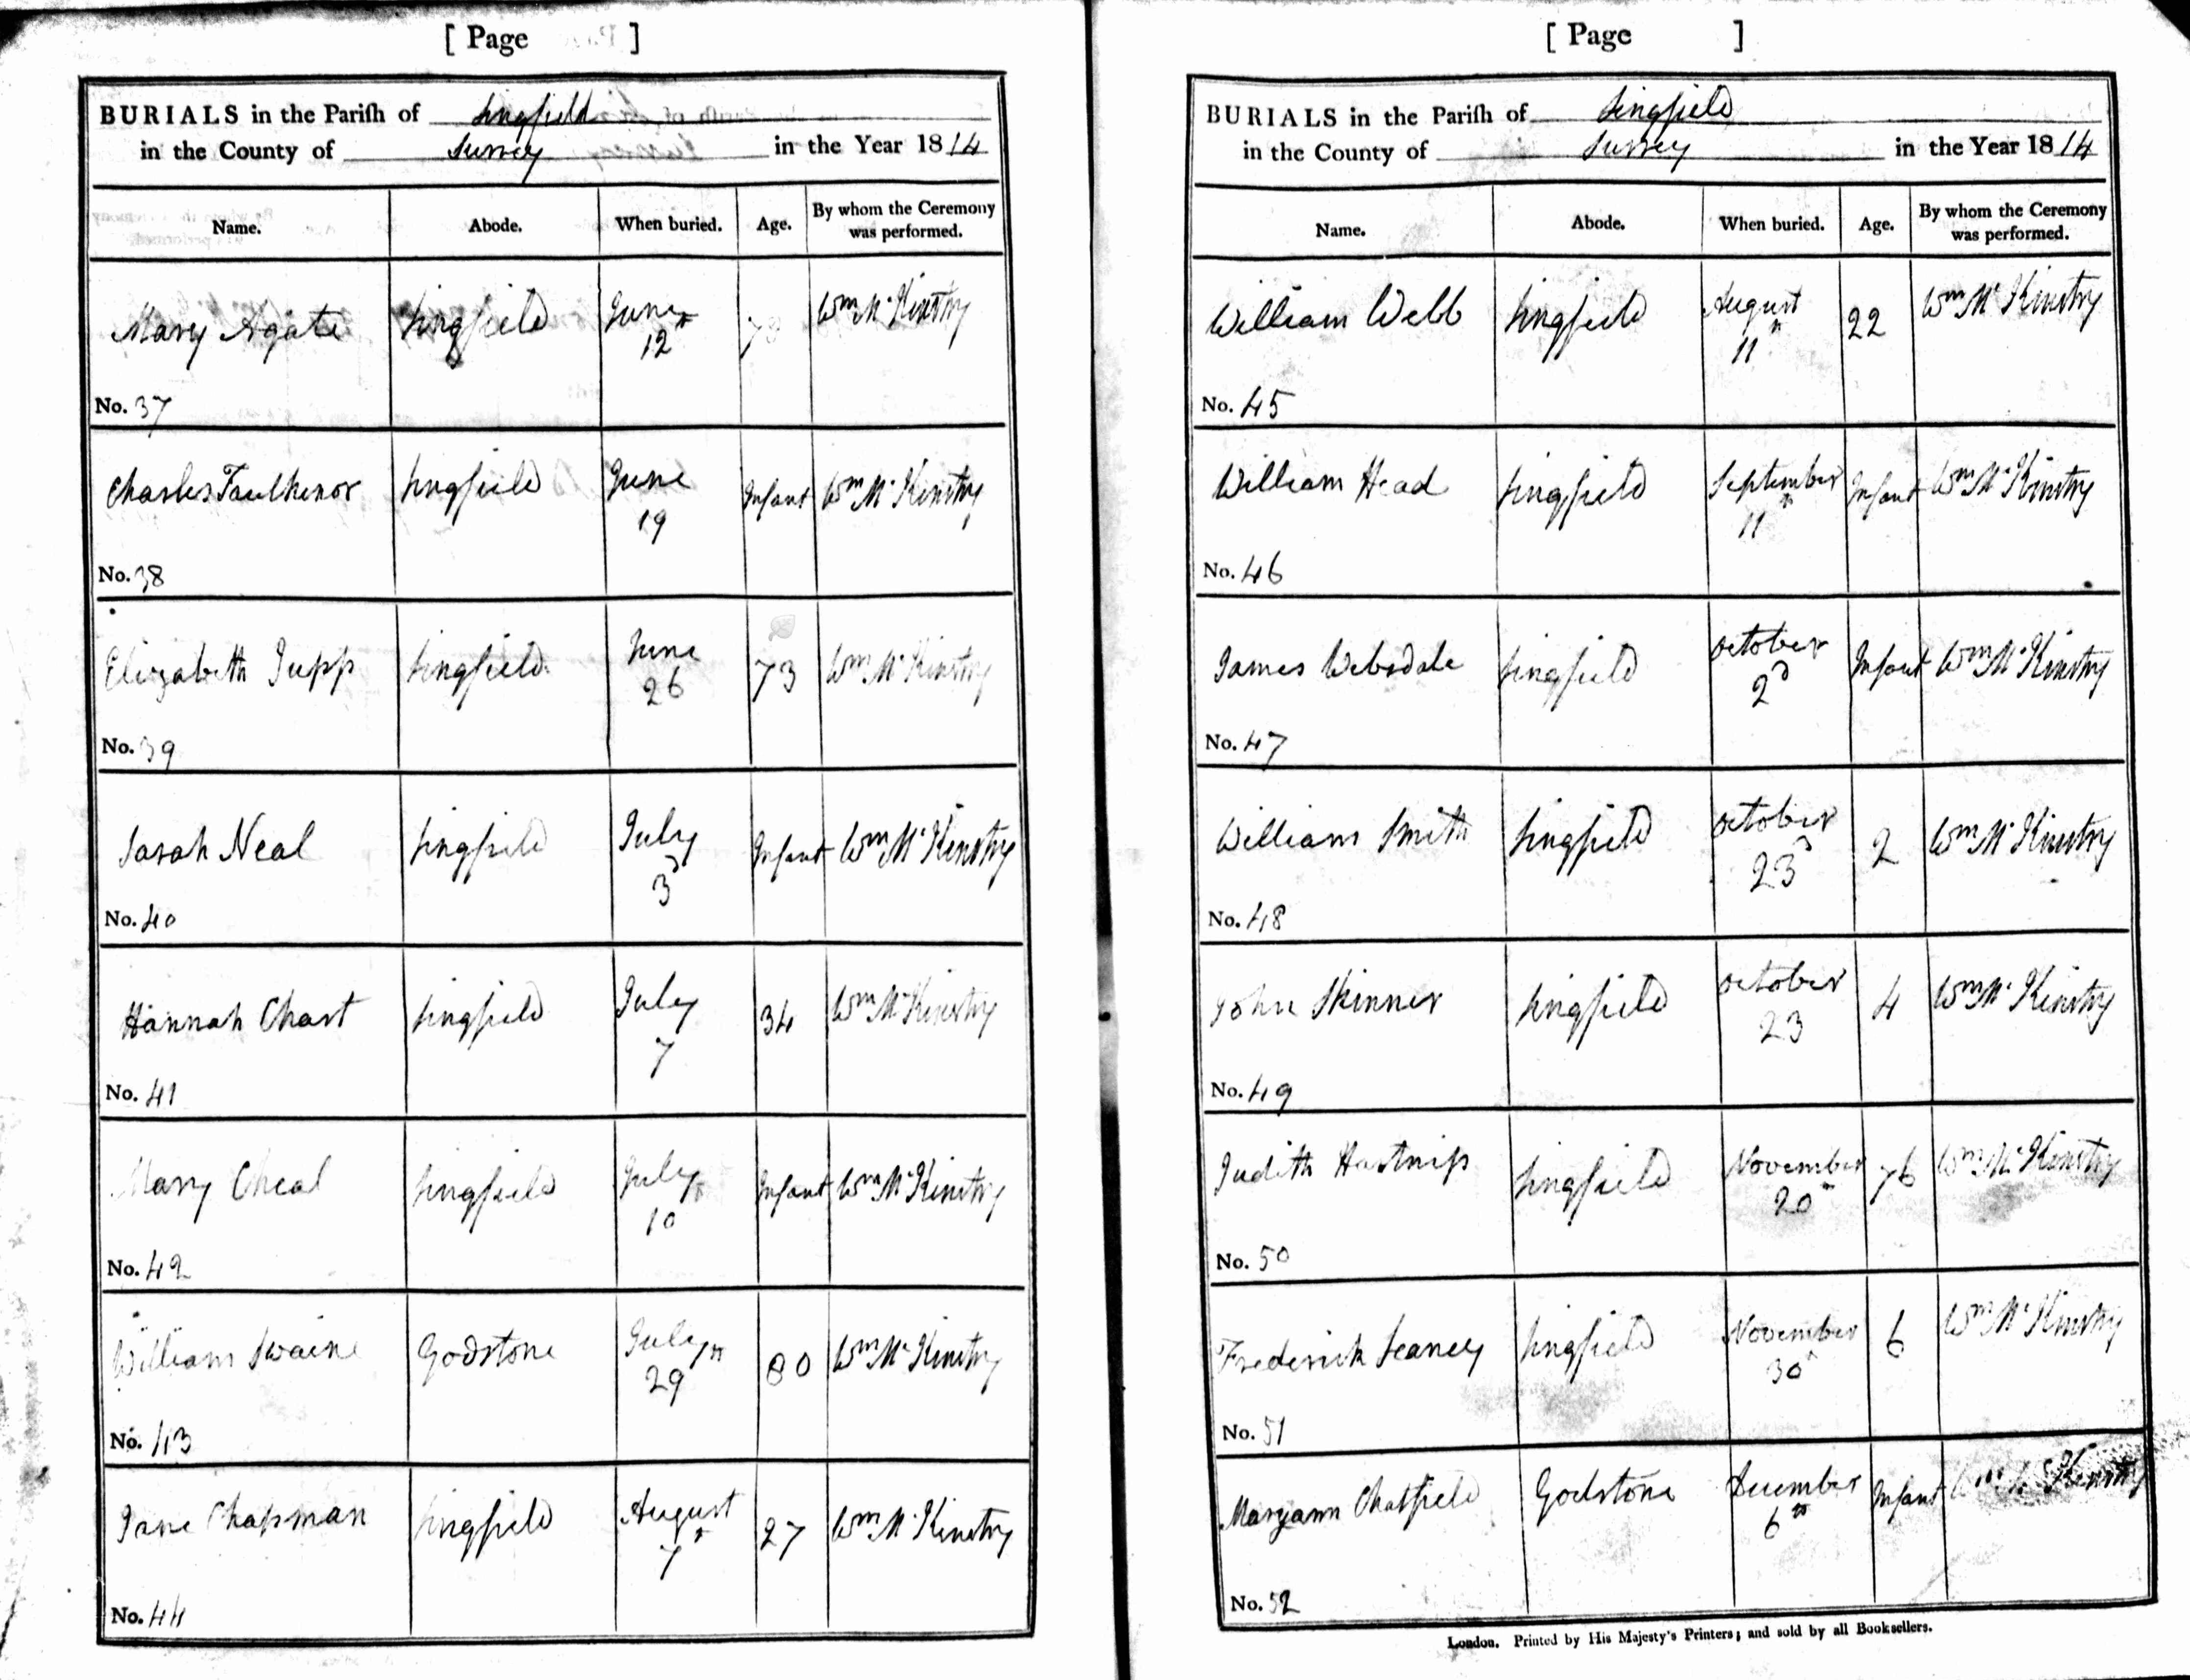 [ Page ]
BURIALS in the Parish of Lingfield
in the County of Surrey in the Year 1814
Name. Abode. When buried. Age. By whom the Ceremony was performed.
Mary Agate Lingfield June 12th Wm Mc Kinstry
No. 37
Charles Faulkenor Lingfield June 19 Infant Wm Mc Kinstry
No. 38
Elizabeth Jupp Lingfield June 26 73 Wm Mc Kinstry
No. 39
Sarah Neal Lingfield July 3d Infant Wm Mc Kinstry
No. 40
Hannah Chart Lingfield July 7 34 Wm Mc Kinstry
No. 41
Mary Cheal Lingfield July 10th Infant Wm Mc Kinstry
No. 42
William Swaine Godstone July 29th 80 Wm Mc Kinstry
No. 43
Jane Chapman Lingfield August 7th 27 Wm Mc Kinstry
No. 44
[ Page ]
BURIALS in the Parish of Lingfield
in the County of Surrey in the Year 1814
Name. Abode. When buried. Age. By whom the Ceremony was performed.
William Webb Lingfield August 11th 22 Wm Mc Kinstry
No. 45
William Head Lingfield September 11th Infant Wm Mc Kinstry
No. 46
James Websdale Lingfield October 2d Infant Wm Mc Kinstry
No. 47
William Smith Lingfield October 23d 2 Wm Mc Kinstry
No. 48
John Skinner Lingfield October 23 4 Wm Mc Kinstry
No. 49
Judith Hastnip Lingfield November 20th 76 Wm Mc Kinstry
No. 50
Frederick Leaney Lingfield November 30th 6 Wm Mc Kinstry
No. 51
Maryann Chatfield Godstone December 6th Infant Wm Mc Kinstry
No. 52
London. Printed by His Majesty's Printers; and sold by all Booksellers.